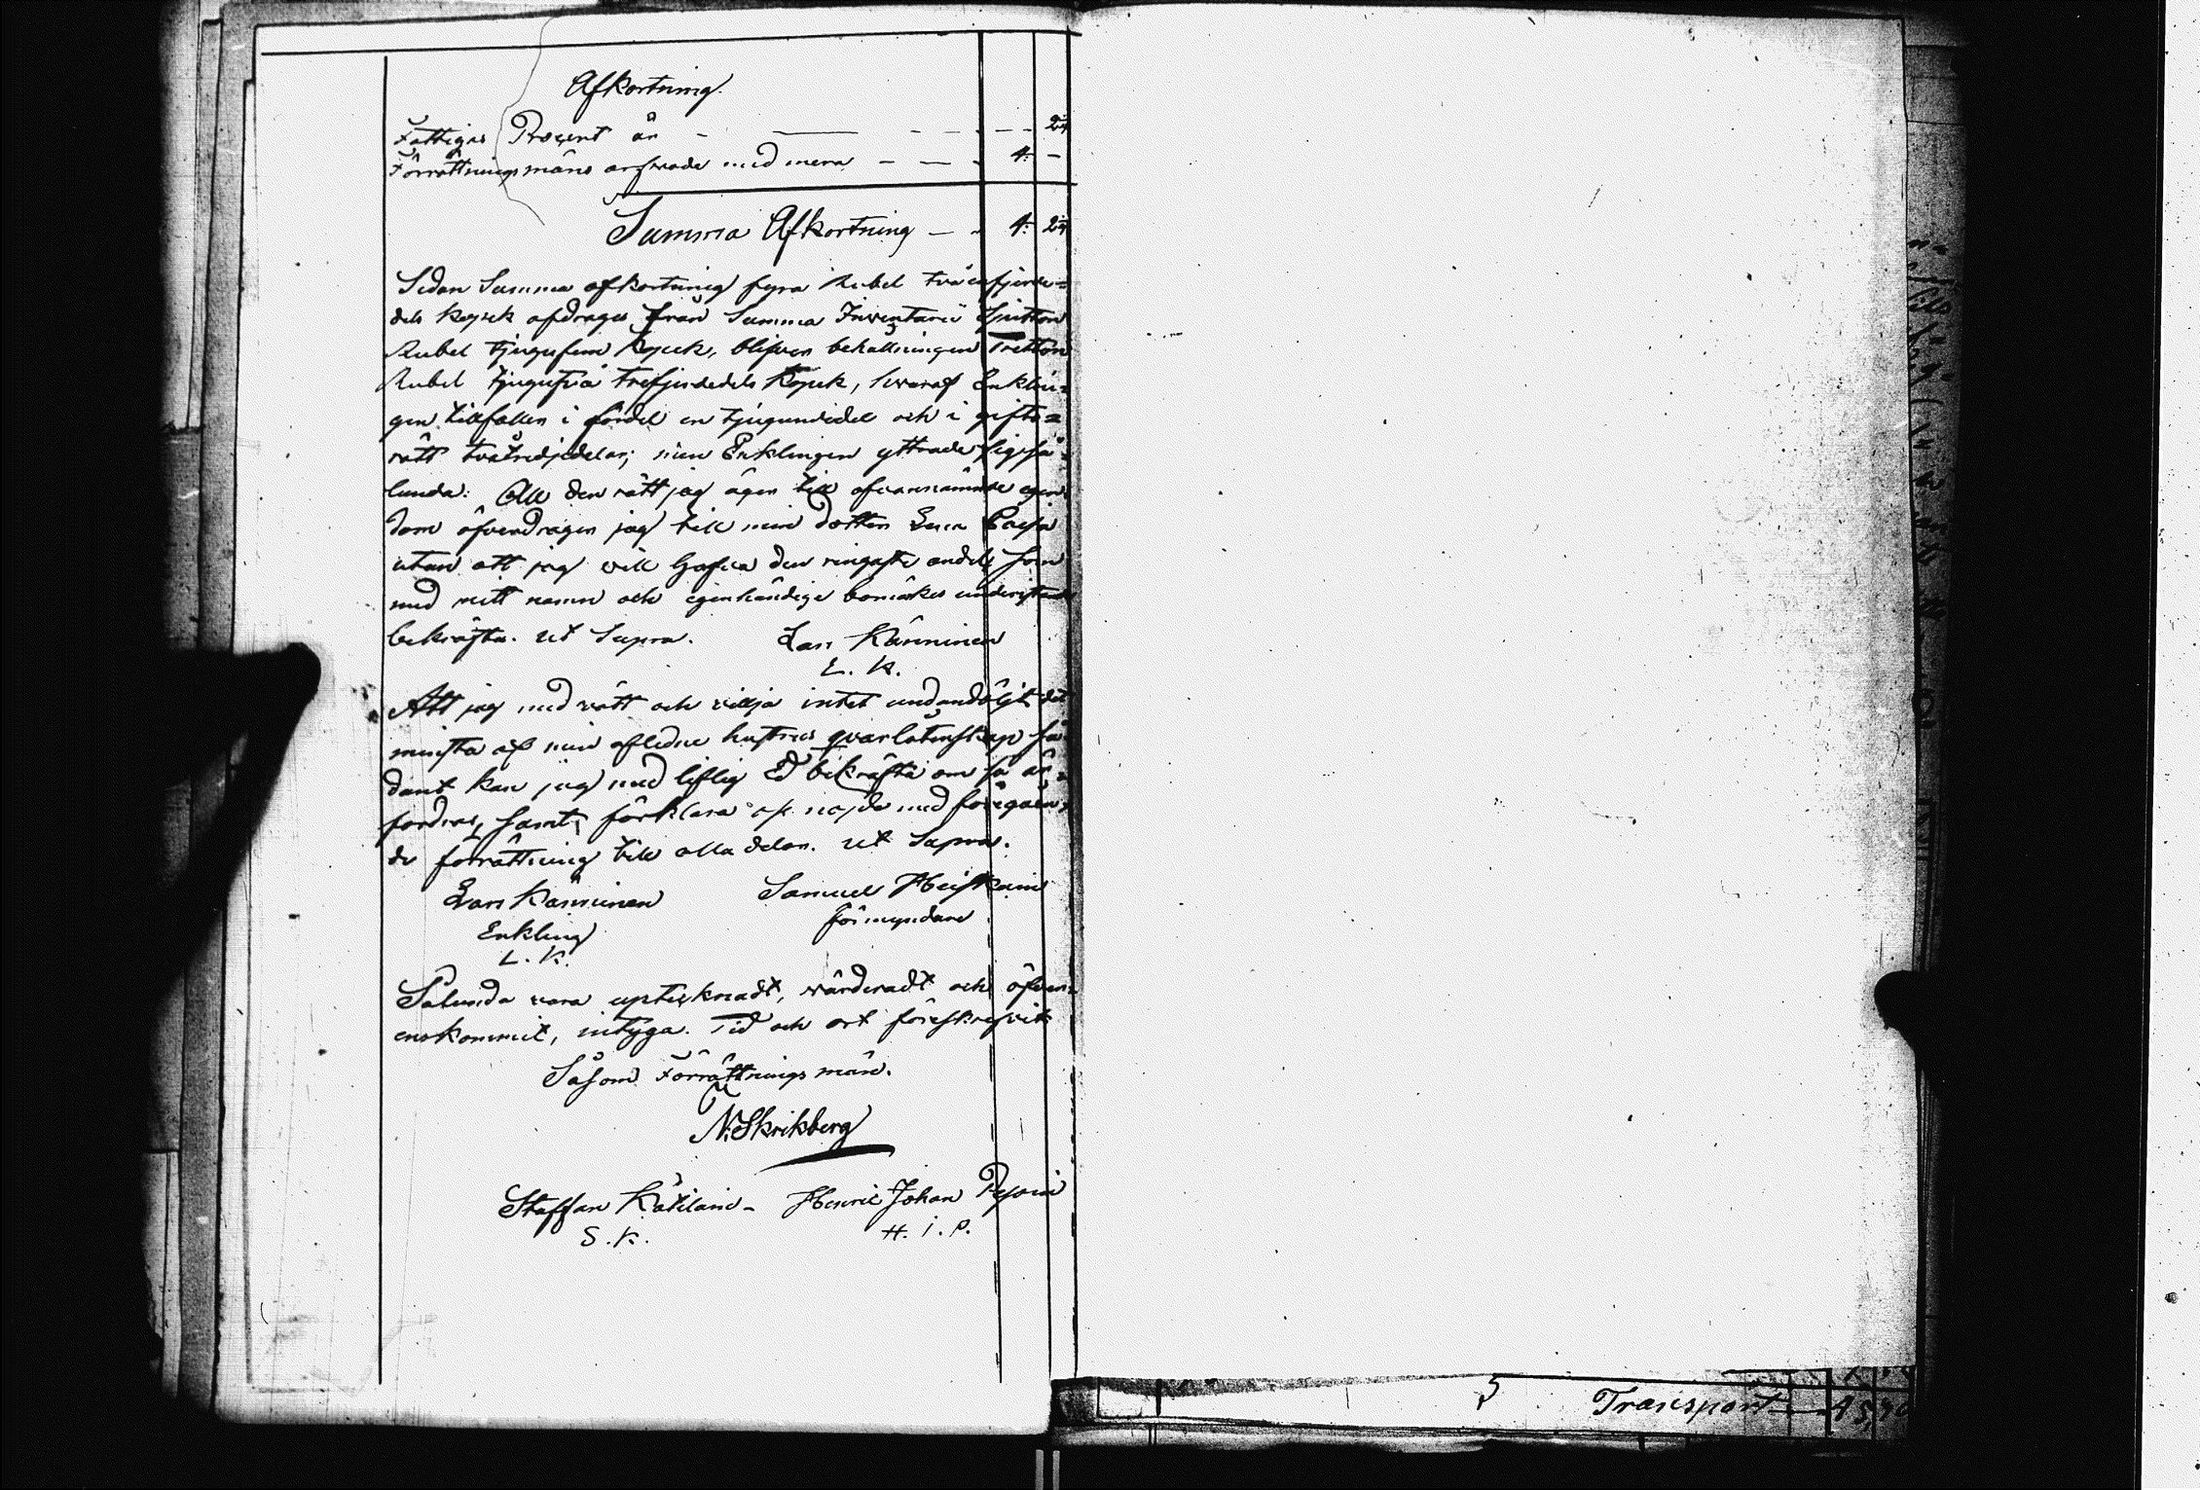 Afkortning.
Fattiges Procent är - — - - - - 2¼
Förrättningsmäns arfwode med mera - — - 4. -
Summa Afkortning — - 4. 2¼
Sedan Summa afkortning fyra Rubel två enfjerde=
dels kopek afdrages från Summa Inventarii Sjutton
Rubel tjugufem Kopek, blifver behållningen Tretton
Rubel tjugutvå trefjerdedels Kopek, hvaraf Enklin=
gen tillfaller i fördel en tjugundedel och i gifto=
rätt tvåtredjedelar; men Enklingen yttrade sig så=
lunda: All den rätt jag äger till ofvannämnde egen
dom öfverdrager jag till min dotter Caisa
utan att jag vill hafva den ringaste andel, som
med mitt namn och egenhändige bomärke
bekräftas. Ut Supra. Lars Känninen
L. K.
Att jag med vätt och vilja intet undandöljt det
minsta af min aflidne hustrus qvarlåtenskap så
dant kan jag med liflig Ed bekräfta om så är=
fordras, samt förklara oss nöjde med föregåen=
de förrättning till alla delar. Ut Supra.
Lars Känninen Samuel Heiskain
Enkling förmyndare
L. K.
Sålunda vara uptecknadt, värderadt och öfver=
enskommit, intyga. Tid och ort föreskrefvit
Såsom Förrättnings män.
N. Skrikberg
Staffan Kätilain - Henric Johan
S. K. H. I. P.
Transport